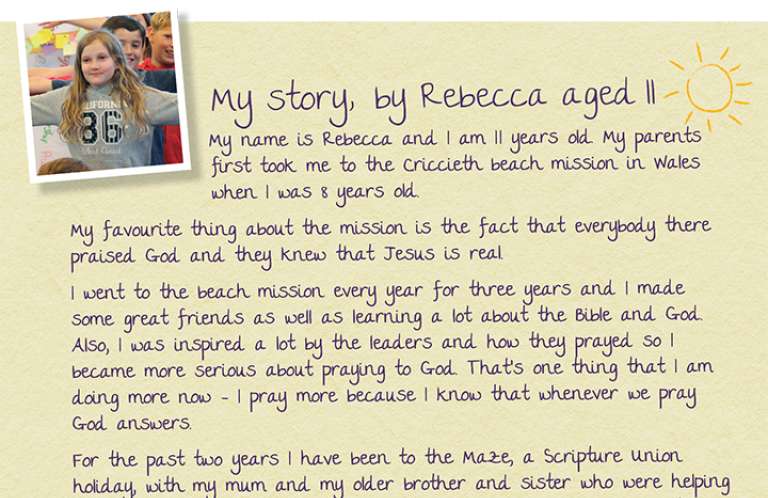 CALIFORNIA
86
My story, by Rebecca aged 11
My name is Rebecca and I am 11 years old. My parents
first took me to the Criccieth beach mission in Wales
when I was 8 years old.
My favourite thing about the mission is the fact that everybody there
praised God and they knew that Jesus is real.
I went to the beach mission every year for three years and I made
some great friends as well as learning a lot about the Bible and God.
Also, I was inspired a lot by the leaders and how they prayed so I
became more serious about praying to God. That's one thing that I am
doing more now - I pray more because I know that whenever we pray
God answers.
For the past two years I have been to the Maze, a Scripture Union
holiday, with my mum and my older brother and sister who were helping